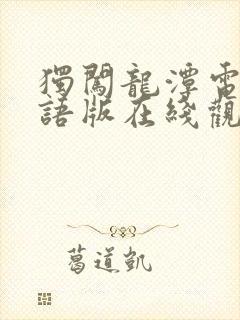 獨闖龍潭電
語版在綫觀
葛道凱